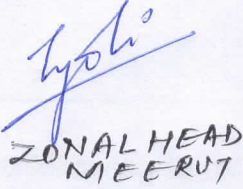 Jyoti
ZONAL HEAD
MEERUT